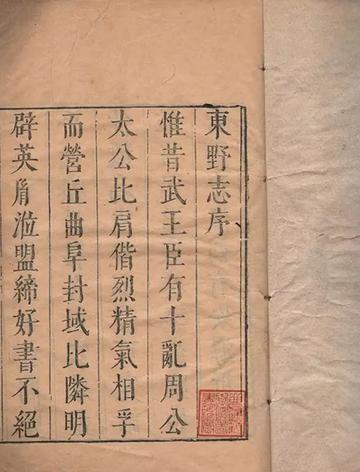 東野志序
惟昔武王臣有十亂周公
太公比肩偕烈精氣相孚
而營丘曲阜封域比隣明
辟英胄涖盟締好書不絕